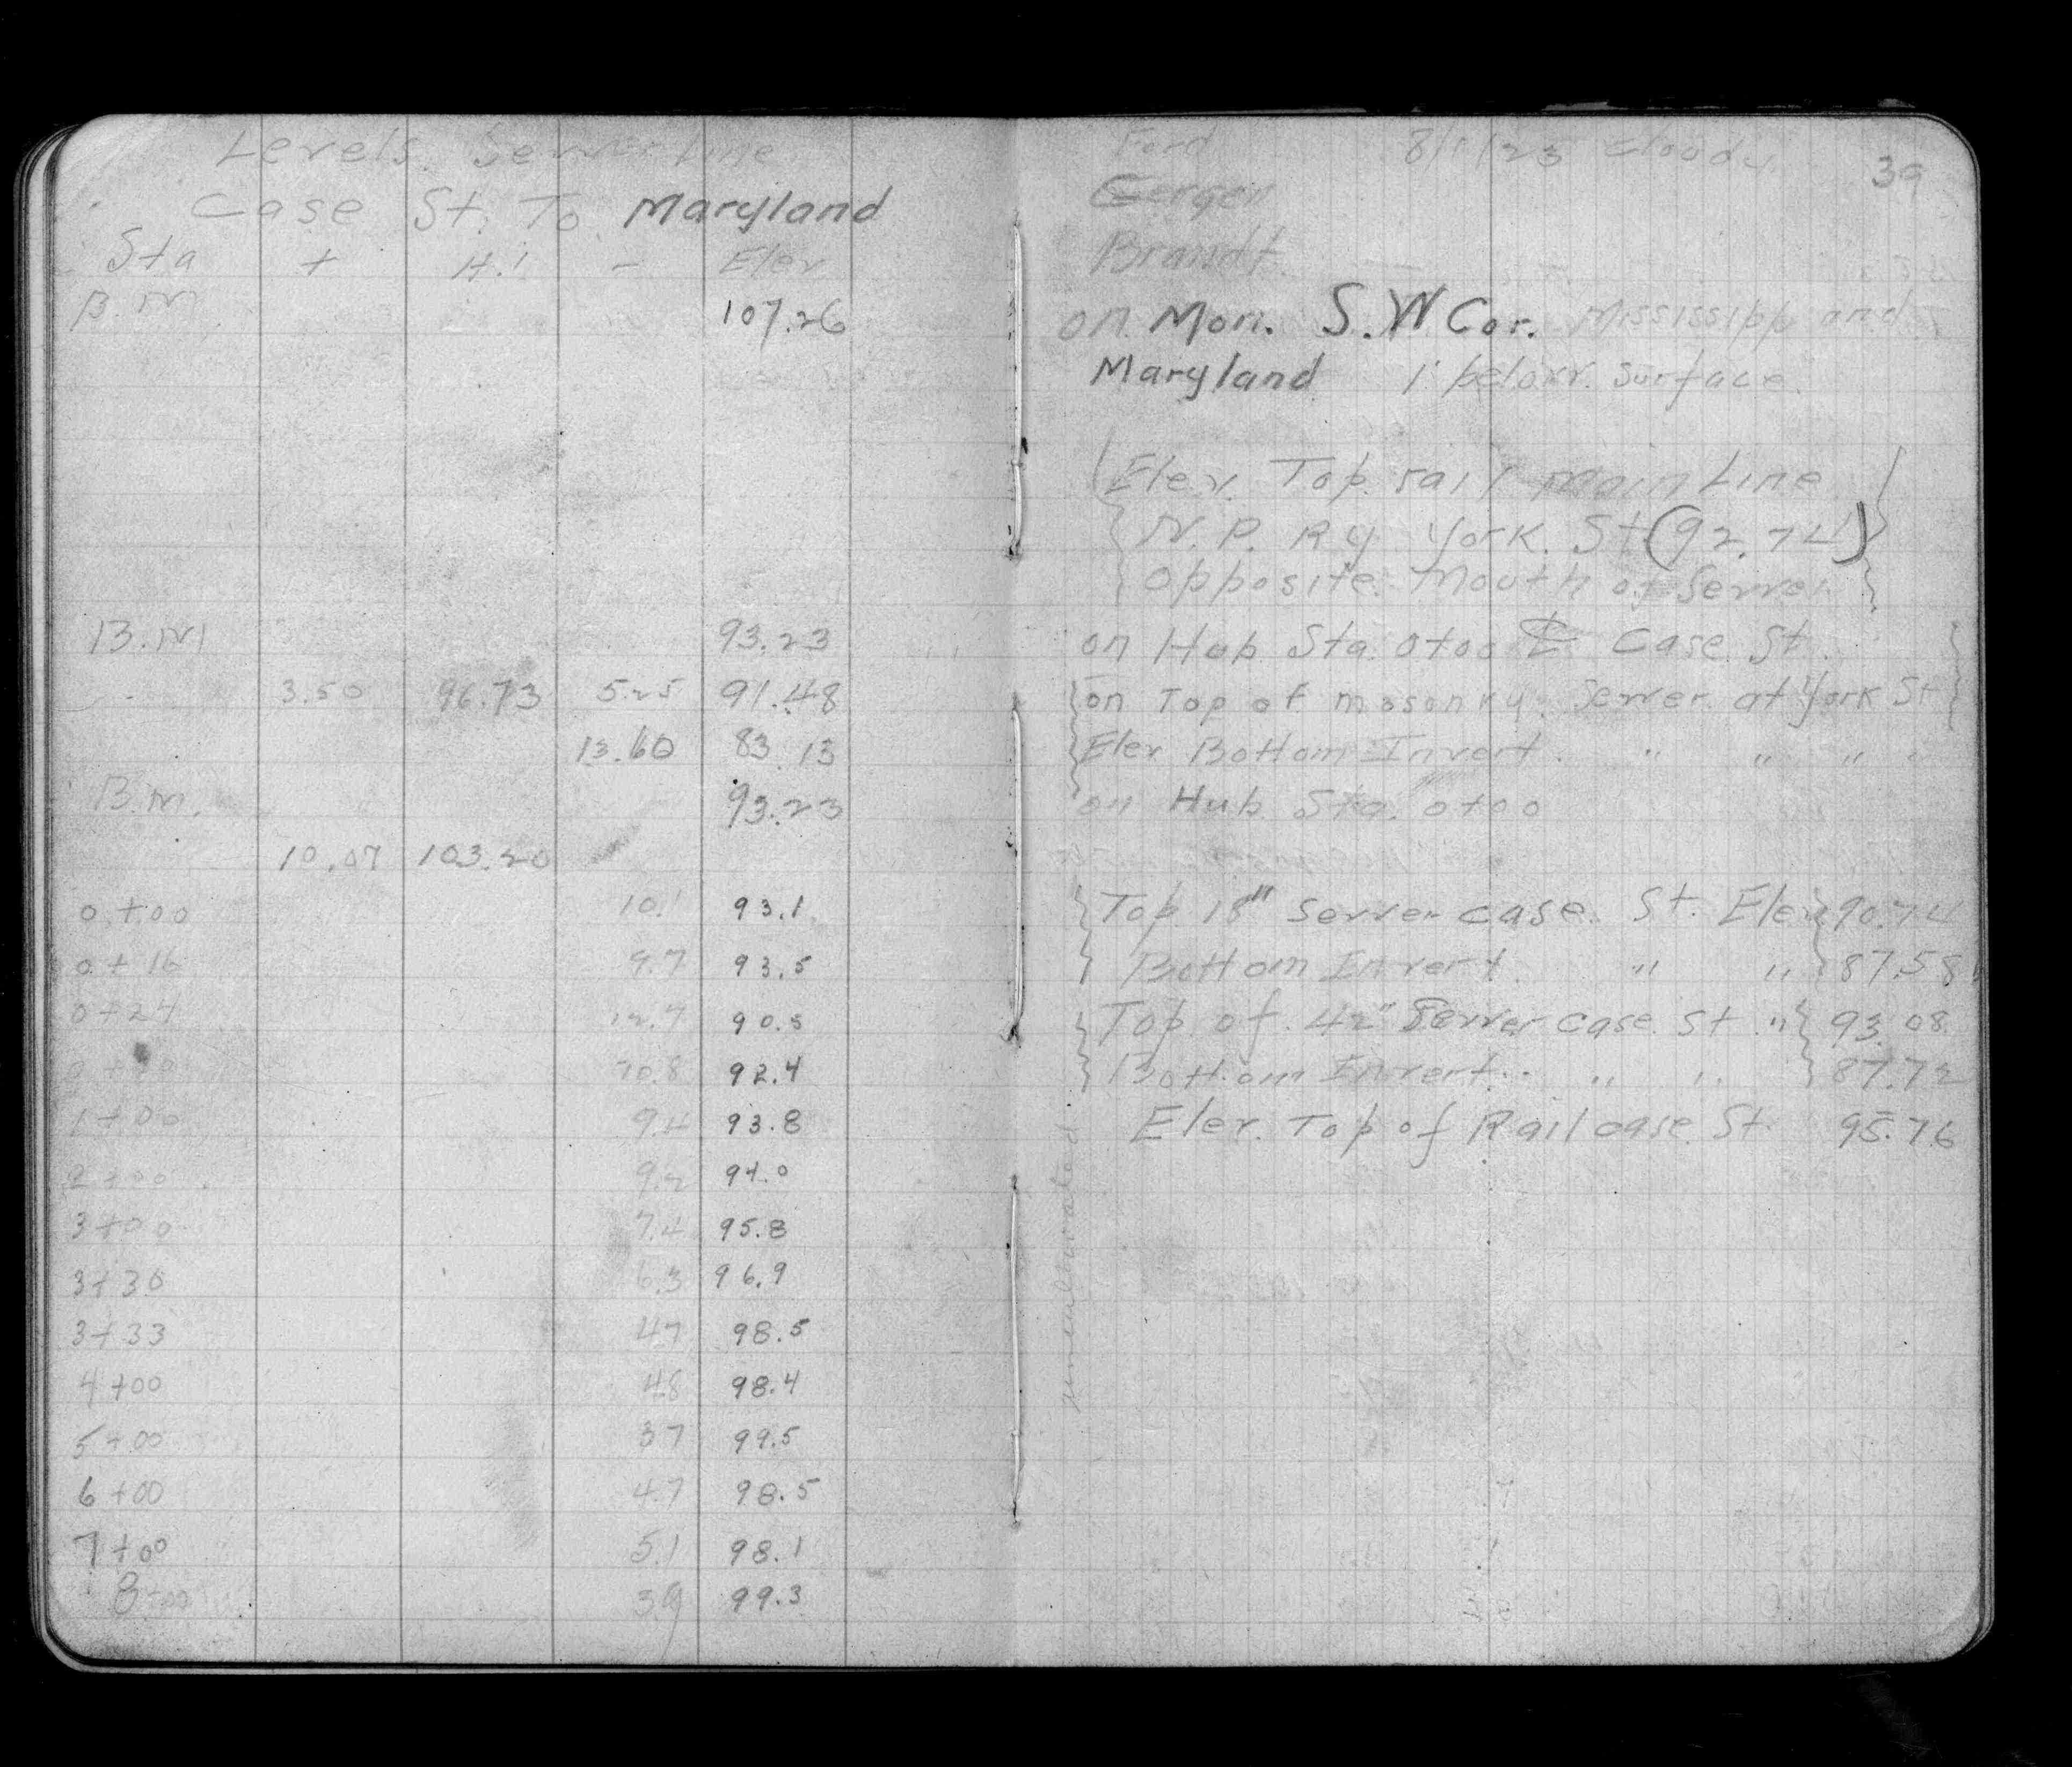 Levels. Sewer Line
Case St. To Maryland
Sta + H.I - Elev
B.M. 107.26
B.M 93.23
3.50 96.73 5.25 91.48
13.60 83.13
B.M. 93.23
10.07 103.20
0+00 10.1 93.1
0+16 9.7 93.5
0+27 12.7 90.5
10.8 92.4
1+00 9.4 93.8
2+00 9.2 94.0
3+00 7.4 95.8
3+30 6.3 96.9
3+33 4.7 98.5
4+00 4.8 98.4
5+00 3.7 99.5
6+00 4.7 98.5
7+00 5.1 98.1
8+00 3.9 99.3
Ford 8/1/23 Cloudy 39
Gergen
Brandt
on Mon. S.W. Cor. Mississipp and
Maryland 1' below. Surface.
Elev. Top rail main Line
N.P. Ry York. St (92.74)
Opposite Mouth of Sewer
on Hub Sta. 0+00 ℄ Case St.
on Top of masonry Sewer at York St
Elev Bottom Invert " " " "
on Hub Sta. 0+00
Top 18" Sewer Case St. Elev 90.74
Bottom Invert " " 87.58
Top of 42" Sewer Case St " 93.08
Bottom Invert " " 87.72
Elev. Top of Rail case St. 95.76